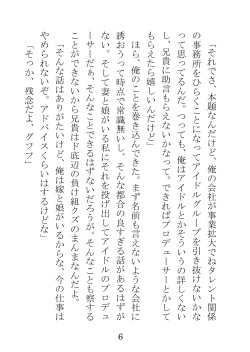 「それでさ、本題なんだけど、俺の会社が事業拡大でねタレント関係
の事務所をひらくことになってアイドルグループを引き抜けないかな
って思ってるんだ。つっても、俺はアイドルとかそういうの詳しくない
し、兄貴に助言もらえないかなって。できればプロデューサーとかして
もらえたら嬉しいんだけど」
ほら、俺のことを巻き込んできた。まず名前も言えないような会社に
誘おうって時点で常識無いし、そんな都合の良すぎる話があるはずが
ない。そして妻と娘がいる私にそれを投げ出してアイドルのプロデュ
ーサーだぁ、そんなことできるはずないだろうが。そんなことも察する
ことができないから兄貴はド底辺の負け組クズのまんまなんだよ。
「そんな話はありがたいけど、俺は嫁と娘がいるからな、今の仕事は
やめられないぞ。アドバイスくらいはするけどな」
「そっか、残念だよ。グフフ」
6